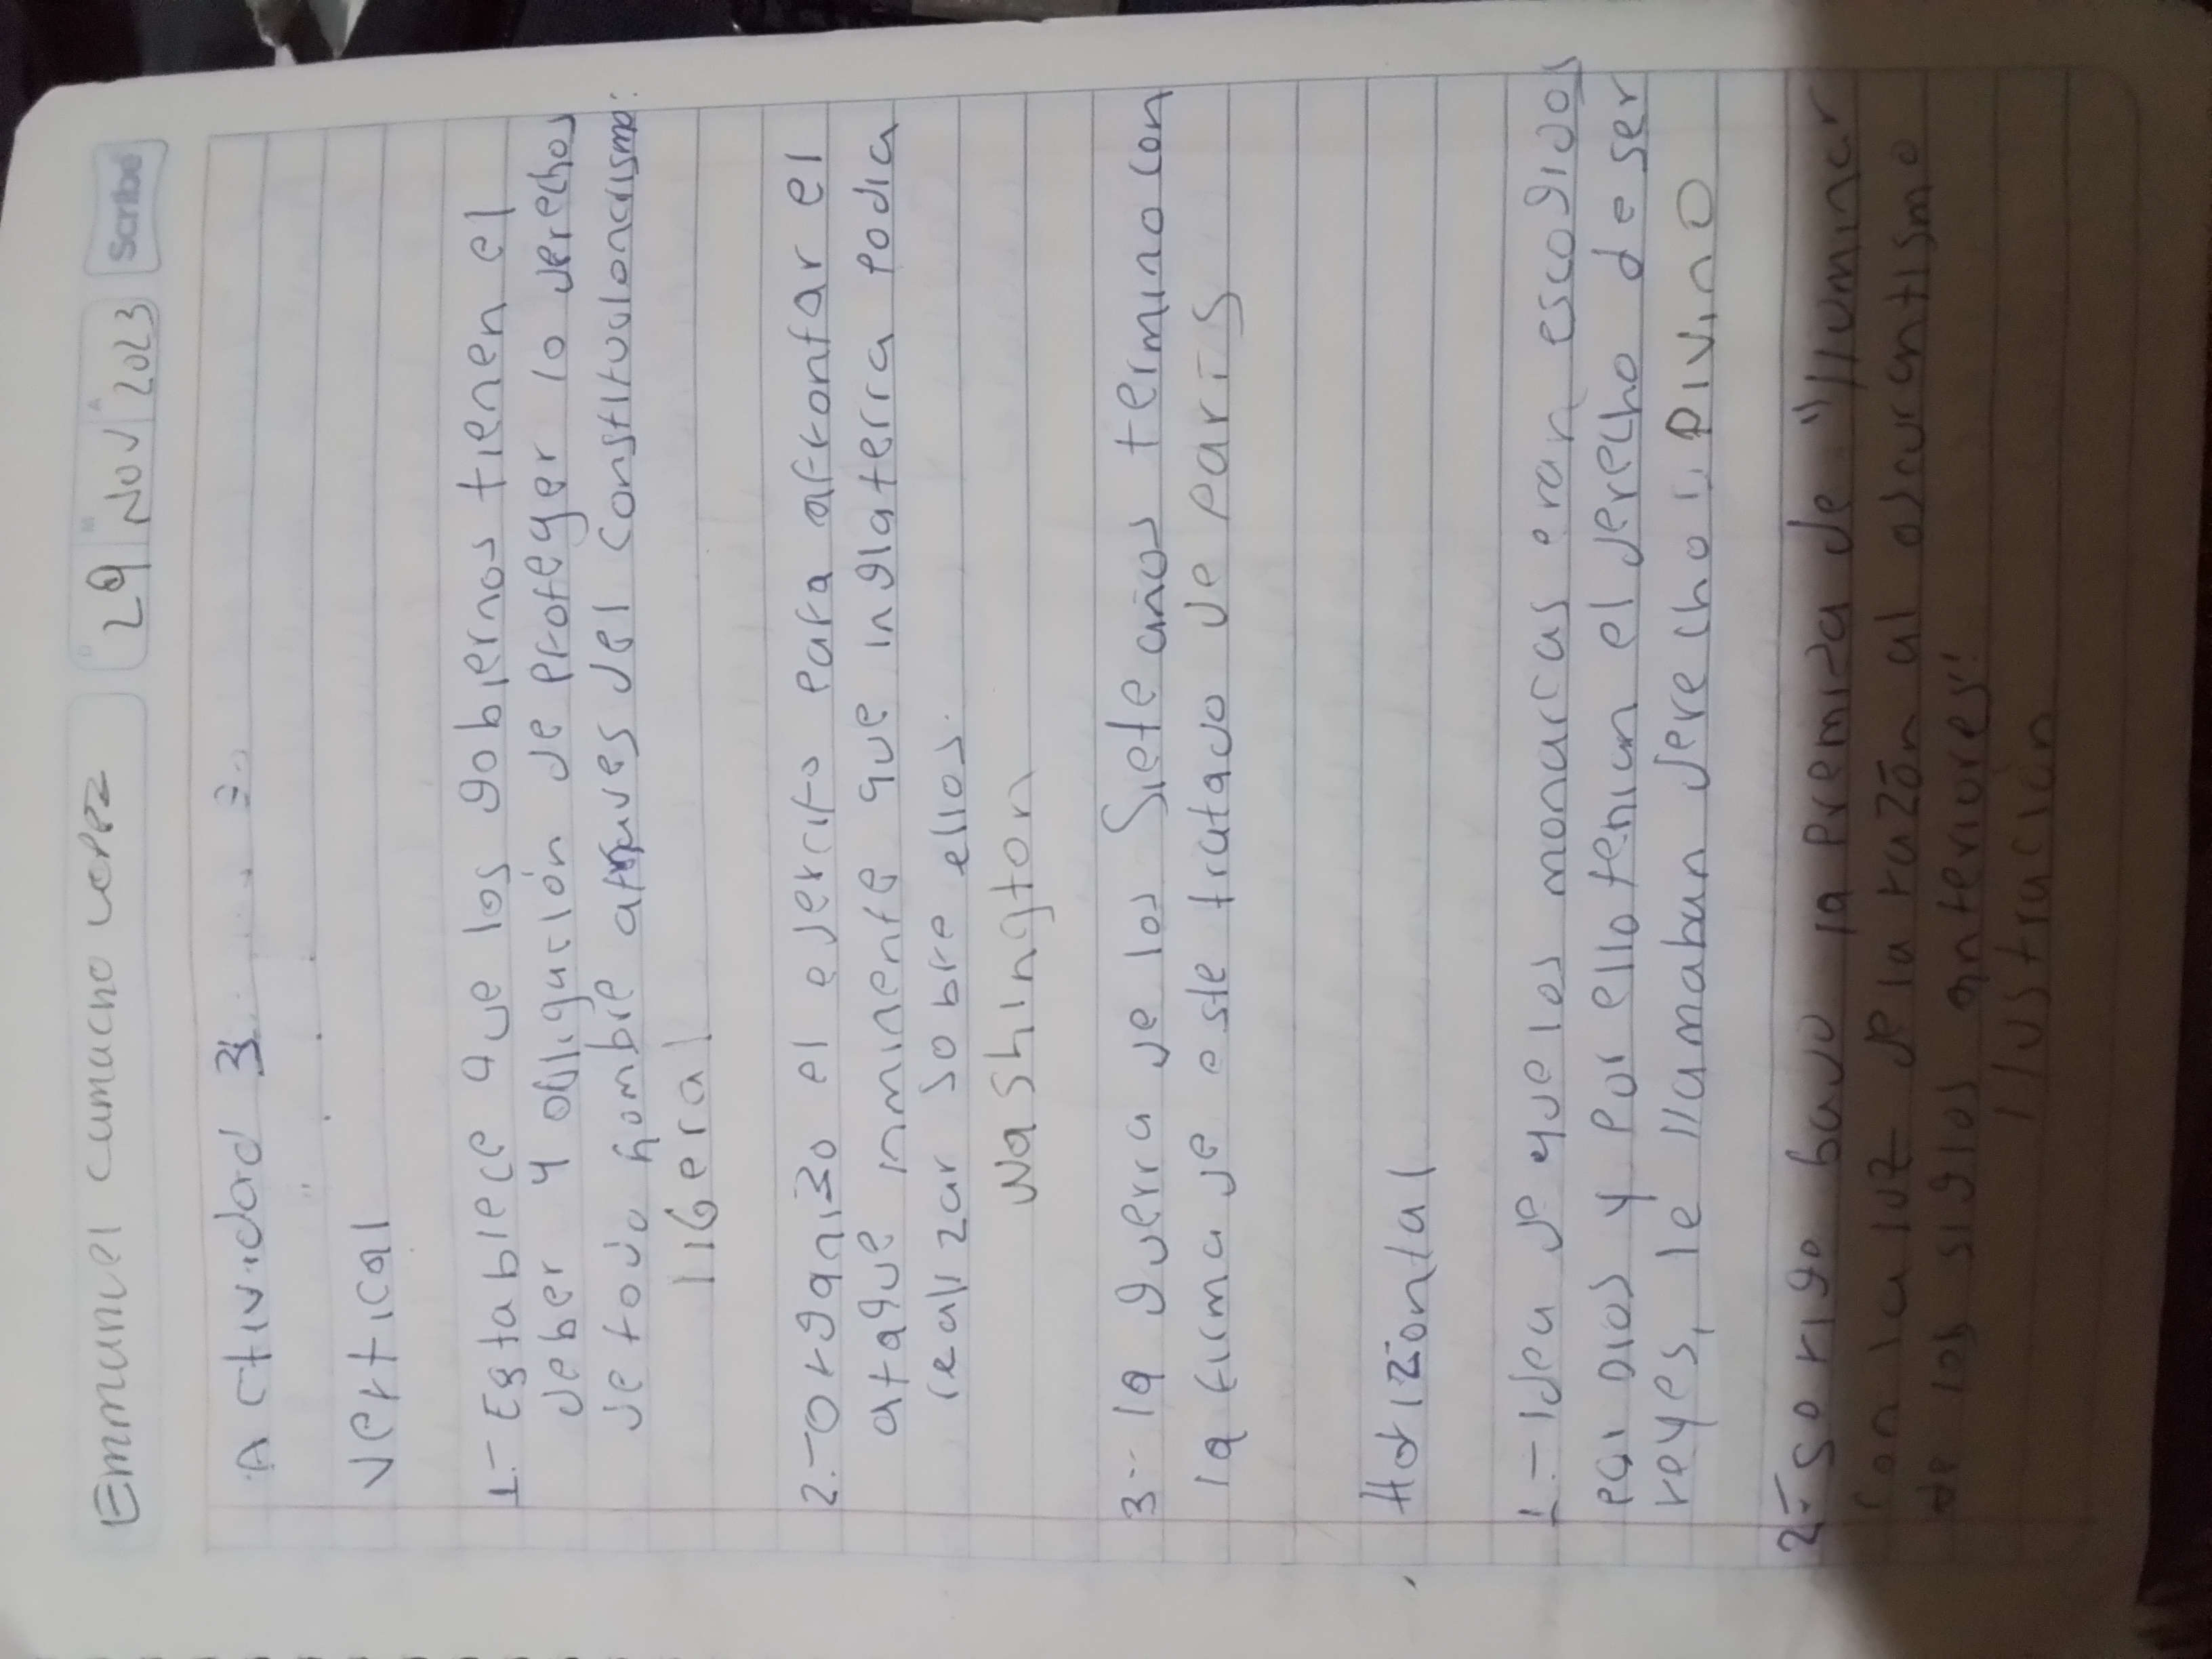 Emmanuel camacho lopez
D 29 M Nov A 2023 Scribe
Actividad 3
Vertical
1.- Establece que los gobiernos tienen el
deber y obligación de proteger lo derechos
de todo hombre atraves del constitucionalismo:
liberal
2.- Organizo el ejercito para afrontar el
ataque inminente que inglaterra podia
realizar sobre ellos.
Washington
3.- la guerra de los Siete años termino con
la firma de este tratado de paris
Horizontal
1.- Idea de que los monarcas eran escogidos
por Dios y por ello tenian el derecho de ser
reyes, le llamaban derecho: Divino
2.- So rigo bajo la premiza de "iluminar
con la luz de la razón al oscurantismo
de los siglos anteriores"
Ilustración